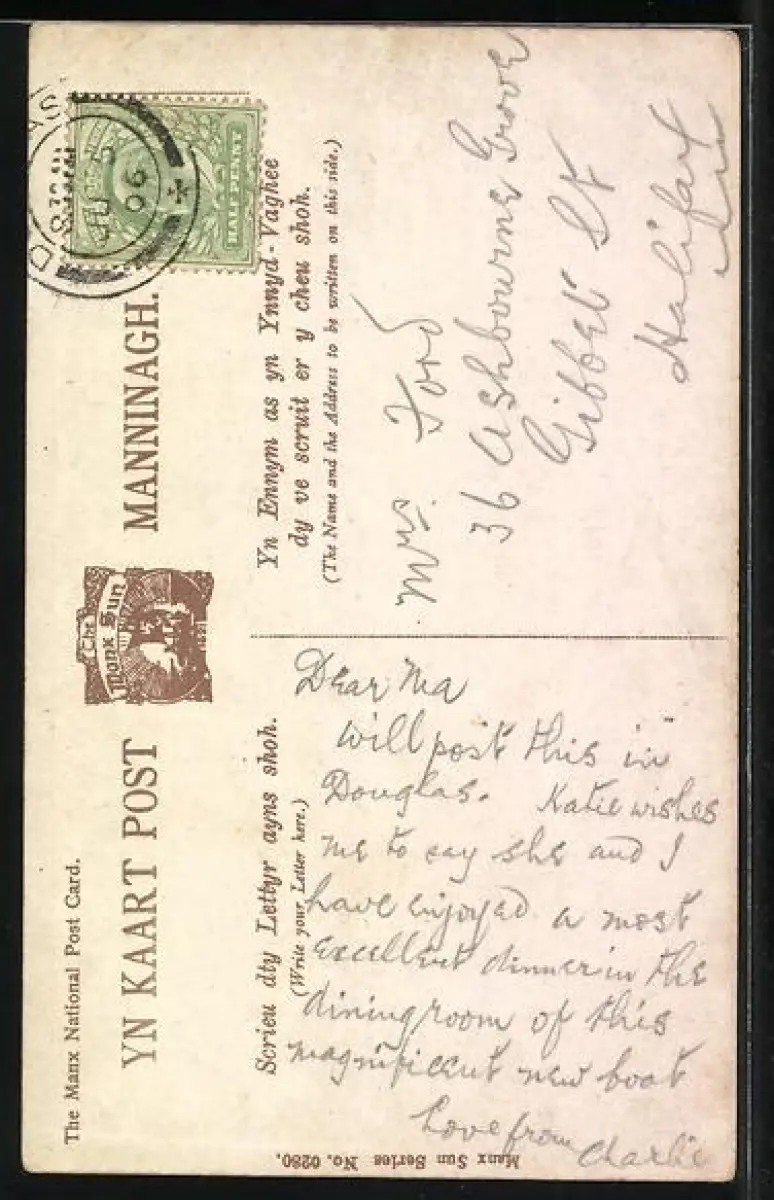 The Manx National Post Card.
YN KAART POST MANNINAGH.
The
Manx Sun
Scrieu dty Lettyr ayns shoh.
(Write your Letter here.)
Yn Ennym as yn Ynnyd-Vaghee
dy ve scruit er y cheu shoh.
(The Name and the Address to be written on this side.)
HALF PENNY
JU 5
06
Dear Ma
will post this in
Douglas. Katie wishes
me to say she and I
have enjoyed a most
excellent dinner in the
dining room of this
magnificent new boat
Love from Charlie
Mrs. Ford
36 Ashbourne Grove
Gibbet St
Halifax
Manx Sun Series No. 0280.